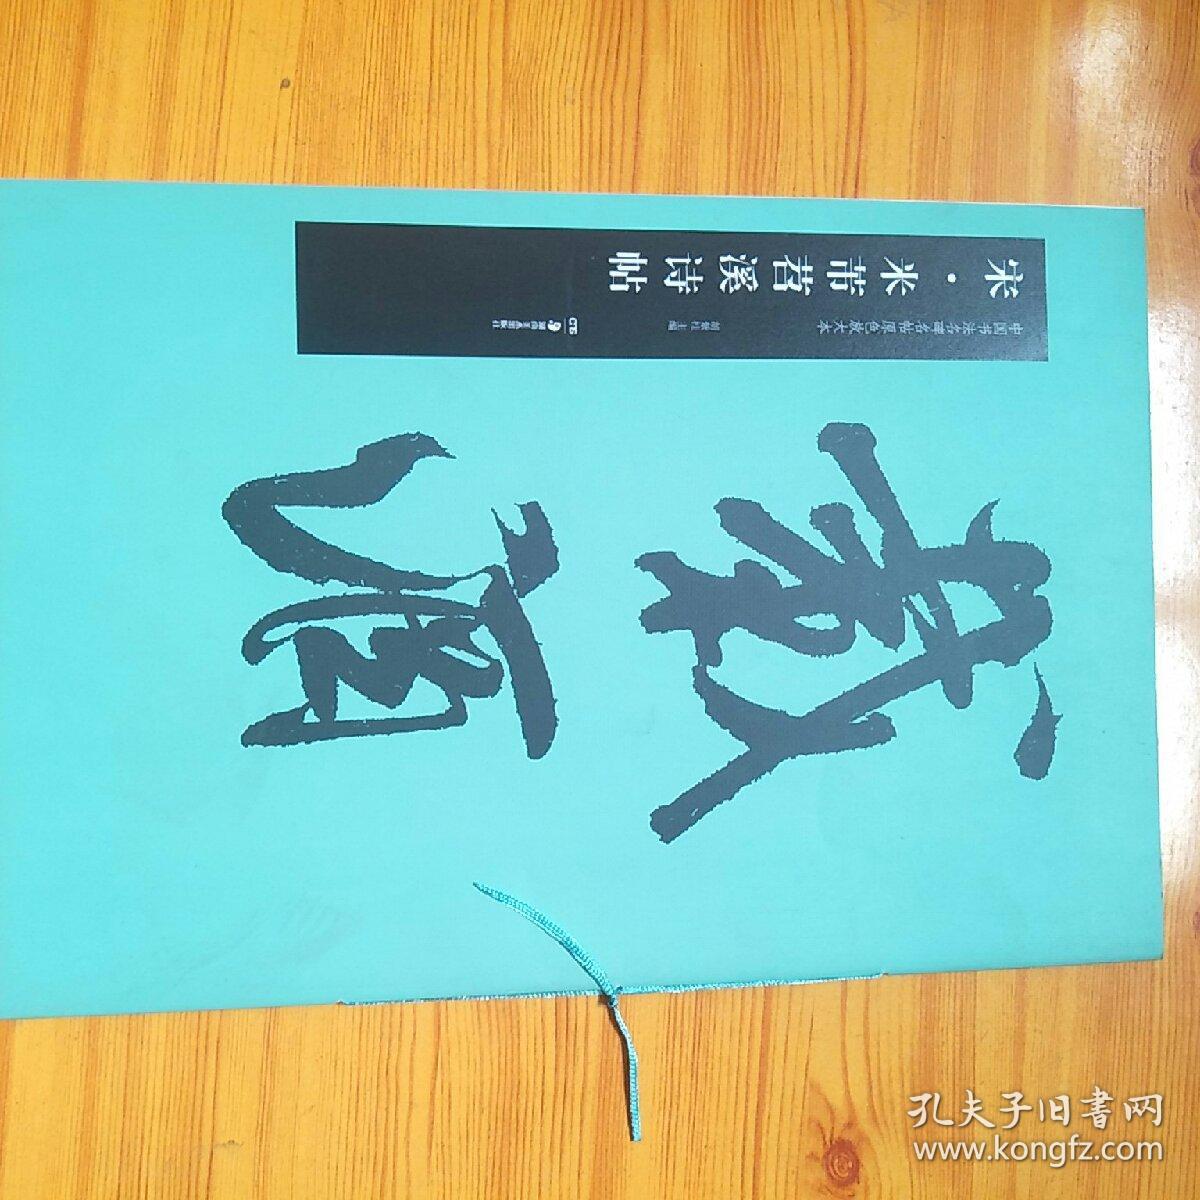 宋·米芾苕溪诗帖
中国书法名碑名帖原色放大本
胡紫桂 主编
CTS
湖南美术出版社
戴
孔夫子旧书网
www.kongfz.com